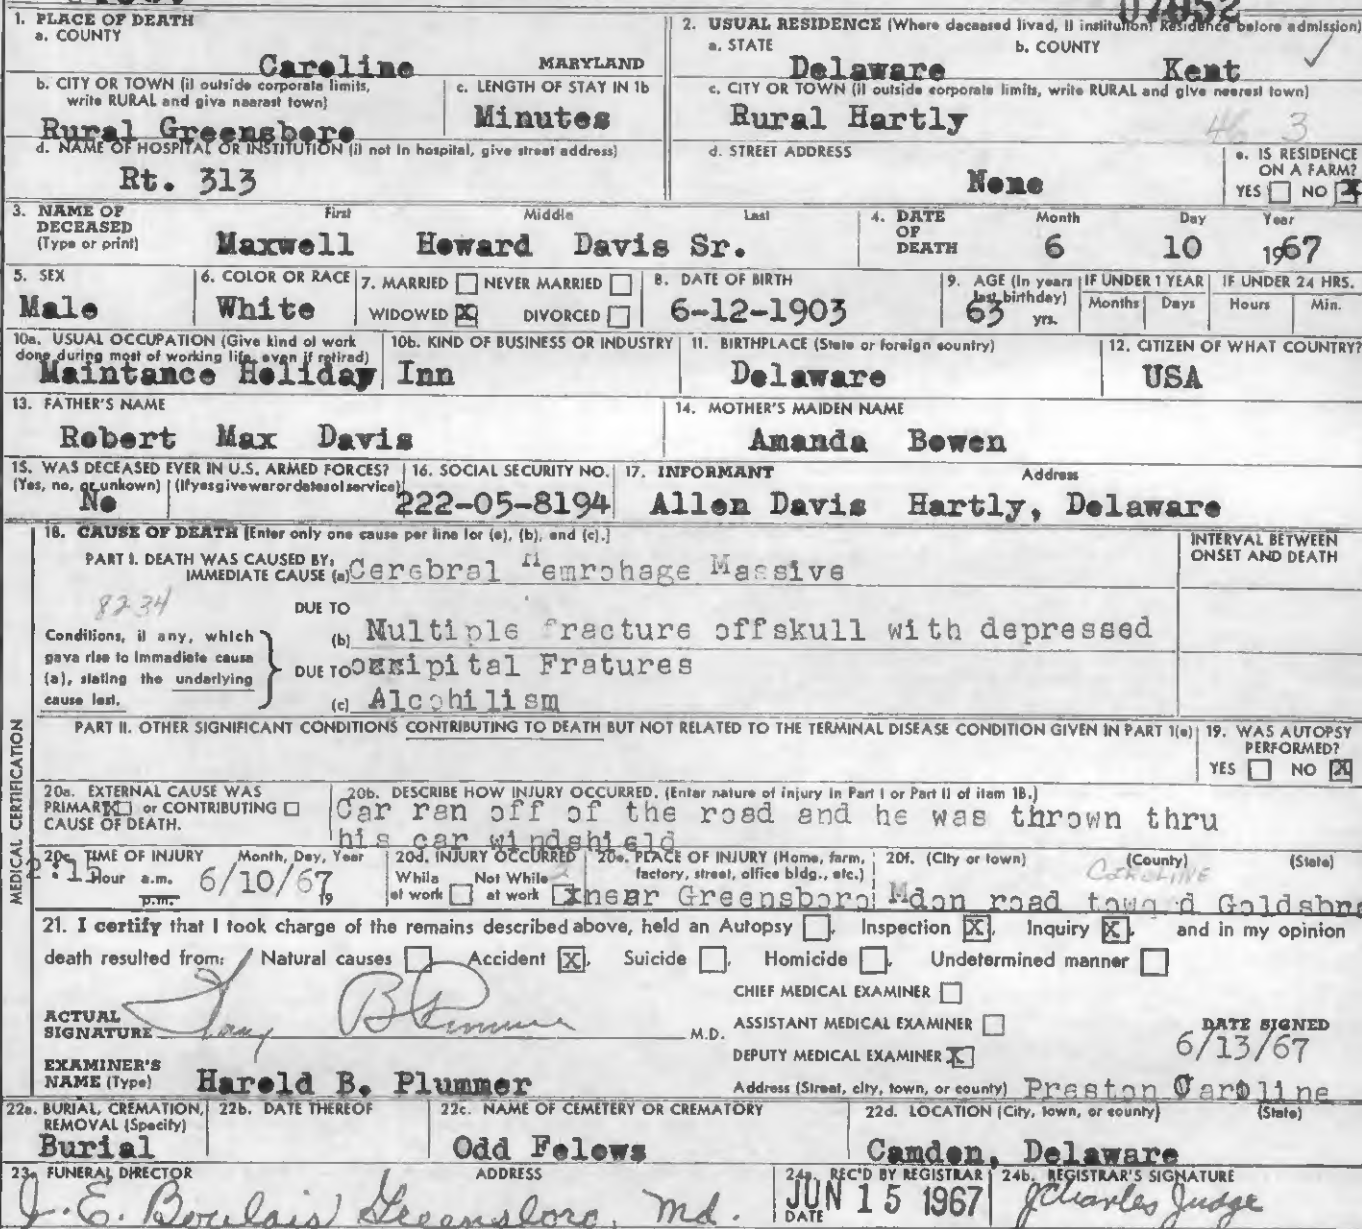 07652
1. PLACE OF DEATH
a. COUNTY
Caroline MARYLAND
b. CITY OR TOWN (if outside corporate limits, write RURAL and give nearest town)
Rural Greensboro
c. LENGTH OF STAY IN 1b
Minutes
d. NAME OF HOSPITAL OR INSTITUTION (if not in hospital, give street address)
Rt. 313
2. USUAL RESIDENCE (Where deceased lived, If institution: Residence before admission)
a. STATE
Delaware
b. COUNTY
Kent
c. CITY OR TOWN (if outside corporate limits, write RURAL and give nearest town)
Rural Hartly
46 3
d. STREET ADDRESS
None
e. IS RESIDENCE ON A FARM?
YES NO X
3. NAME OF DECEASED (Type or print)
First Middle Last
Maxwell Howard Davis Sr.
4. DATE OF DEATH
Month Day Year
6 10 1967
5. SEX
Male
6. COLOR OR RACE
White
7. MARRIED NEVER MARRIED
WIDOWED X DIVORCED
8. DATE OF BIRTH
6-12-1903
9. AGE (In years last birthday)
63 yrs.
IF UNDER 1 YEAR
Months Days
IF UNDER 24 HRS.
Hours Min.
10a. USUAL OCCUPATION (Give kind of work done during most of working life, even if retired)
10b. KIND OF BUSINESS OR INDUSTRY
Maintance Holiday Inn
11. BIRTHPLACE (State or foreign country)
Delaware
12. CITIZEN OF WHAT COUNTRY?
USA
13. FATHER'S NAME
Robert Max Davis
14. MOTHER'S MAIDEN NAME
Amanda Bowen
15. WAS DECEASED EVER IN U.S. ARMED FORCES?
(Yes, no, or unkown) (If yes give war or dates of service)
No
16. SOCIAL SECURITY NO.
222-05-8194
17. INFORMANT Address
Allen Davis Hartly, Delaware
18. CAUSE OF DEATH [Enter only one cause per line for (a), (b), and (c).]
INTERVAL BETWEEN ONSET AND DEATH
PART I. DEATH WAS CAUSED BY:
IMMEDIATE CAUSE (a) Cerebral Hemrohage Massive
8234
Conditions, if any, which gave rise to immediate cause (a), stating the underlying cause last.
DUE TO
(b) Multiple fracture offskull with depressed
DUE TO occipital Fratures
(c) Alcohilism
PART II. OTHER SIGNIFICANT CONDITIONS CONTRIBUTING TO DEATH BUT NOT RELATED TO THE TERMINAL DISEASE CONDITION GIVEN IN PART I(a)
19. WAS AUTOPSY PERFORMED?
YES NO X
MEDICAL CERTIFICATION
20a. EXTERNAL CAUSE WAS
PRIMARY X or CONTRIBUTING
CAUSE OF DEATH.
20b. DESCRIBE HOW INJURY OCCURRED. (Enter nature of injury in Part I or Part II of item 18.)
Car ran off of the road and he was thrown thru
his car windshield
20c. TIME OF INJURY Month, Day, Year
2:15 Hour a.m. p.m. 6/10/67 19
20d. INJURY OCCURRED
While at work Not While at work X
20e. PLACE OF INJURY (Home, farm, factory, street, office bldg., etc.)
20f. (City or town) (County) (State)
Caroline
near Greensboro Mdon road toward Goldsbno
21. I certify that I took charge of the remains described above, held an Autopsy , Inspection X, Inquiry X, and in my opinion
death resulted from: Natural causes Accident X, Suicide , Homicide , Undetermined manner
CHIEF MEDICAL EXAMINER
ACTUAL SIGNATURE M.D.
ASSISTANT MEDICAL EXAMINER
DATE SIGNED
6/13/67
DEPUTY MEDICAL EXAMINER X
EXAMINER'S NAME (Type) Harold B. Plummer
Address (Street, city, town, or county) Preston Caroline
22a. BURIAL, CREMATION, REMOVAL (Specify)
Burial
22b. DATE THEREOF
22c. NAME OF CEMETERY OR CREMATORY
Odd Felows
22d. LOCATION (City, town, or county) (State)
Camden, Delaware
23. FUNERAL DIRECTOR ADDRESS
J. E. Boulais Greensboro, Md.
24a. REC'D BY REGISTRAR
DATE JUN 15 1967
24b. REGISTRAR'S SIGNATURE
J Charles Judge